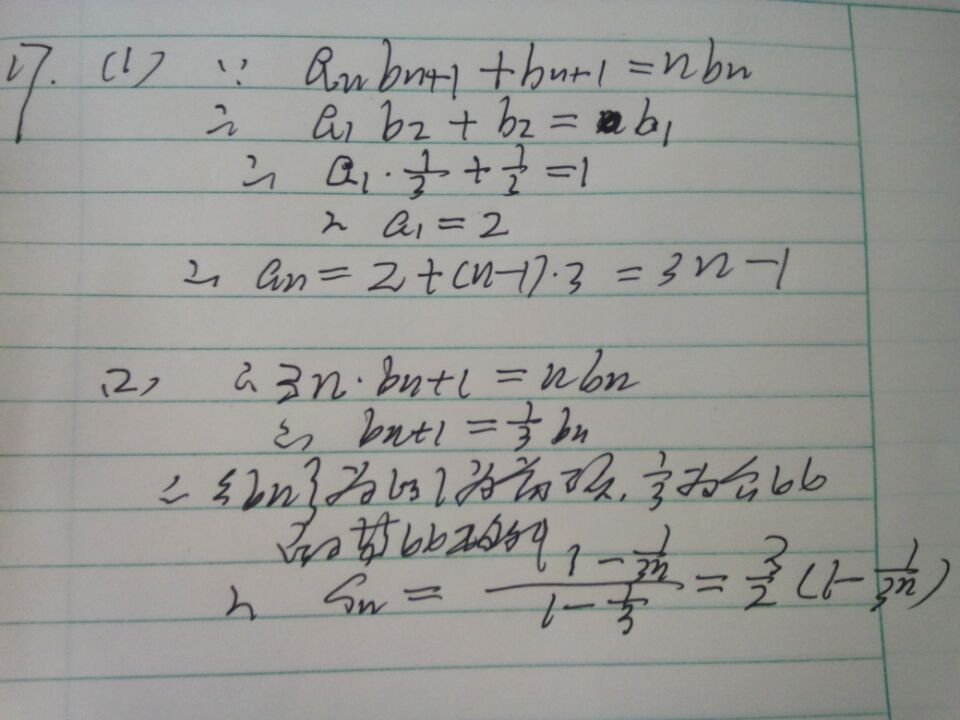 17. (1) ∵ aₙbₙ₊₁ + bₙ₊₁ = nbₙ
∴ a₁ b₂ + b₂ = b₁
∴ a₁ · 1/3 + 1/3 = 1
∴ a₁ = 2
∴ aₙ = 2 + (n-1)·3 = 3n-1
(2) ∴ 3n · bₙ₊₁ = nbₙ
∴ bₙ₊₁ = 1/3 bₙ
∴ {bₙ}为以1为首项, 1/3为公比
的等比数列
∴ Sₙ = (1 - 1/3ⁿ)/(1 - 1/3) = 3/2 (1 - 1/3ⁿ)